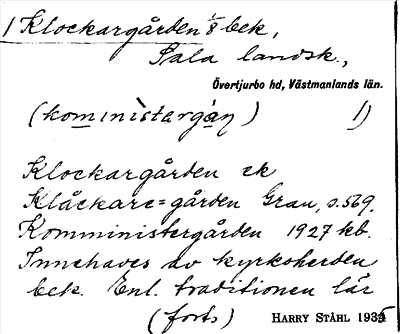 1 Klockargården 1/8 bek,
Sala landsk.,
Övertjurbo hd, Västmanlands län.
(kom̲inìstargån) 1)
Klockargården ek
Klåckare=gården Grau, s. 569.
Komministergården 1927 kb.
Innehaves av kyrkoherden
bek. Enl. traditionen lär
(forts) HARRY STÅHL 1935